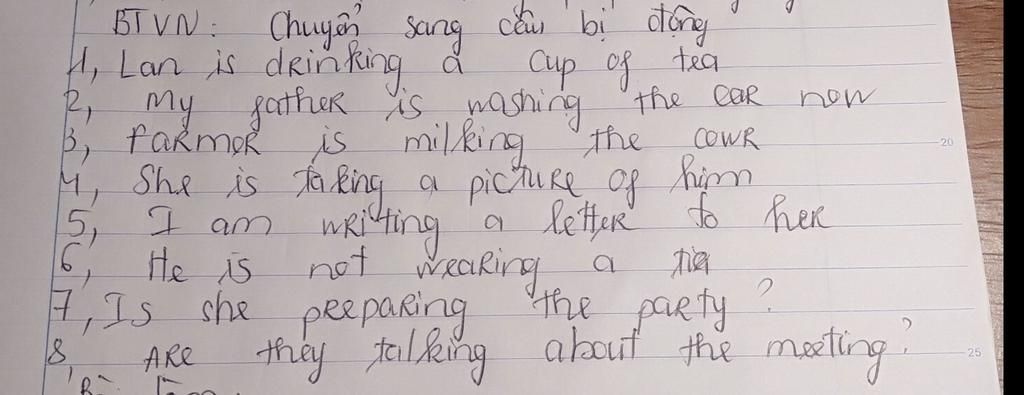 BTVN: Chuyển sang câu bị động
1, Lan is drinking a cup of tea
2, My father is washing the car now
3, farmer is milking the cowr
4, She is taking a picture of him
5, I am writting a letter to her
6, He is not wearing a tie
7, Is she preparing the party?
8, Are they talking about the meeting?
20
25